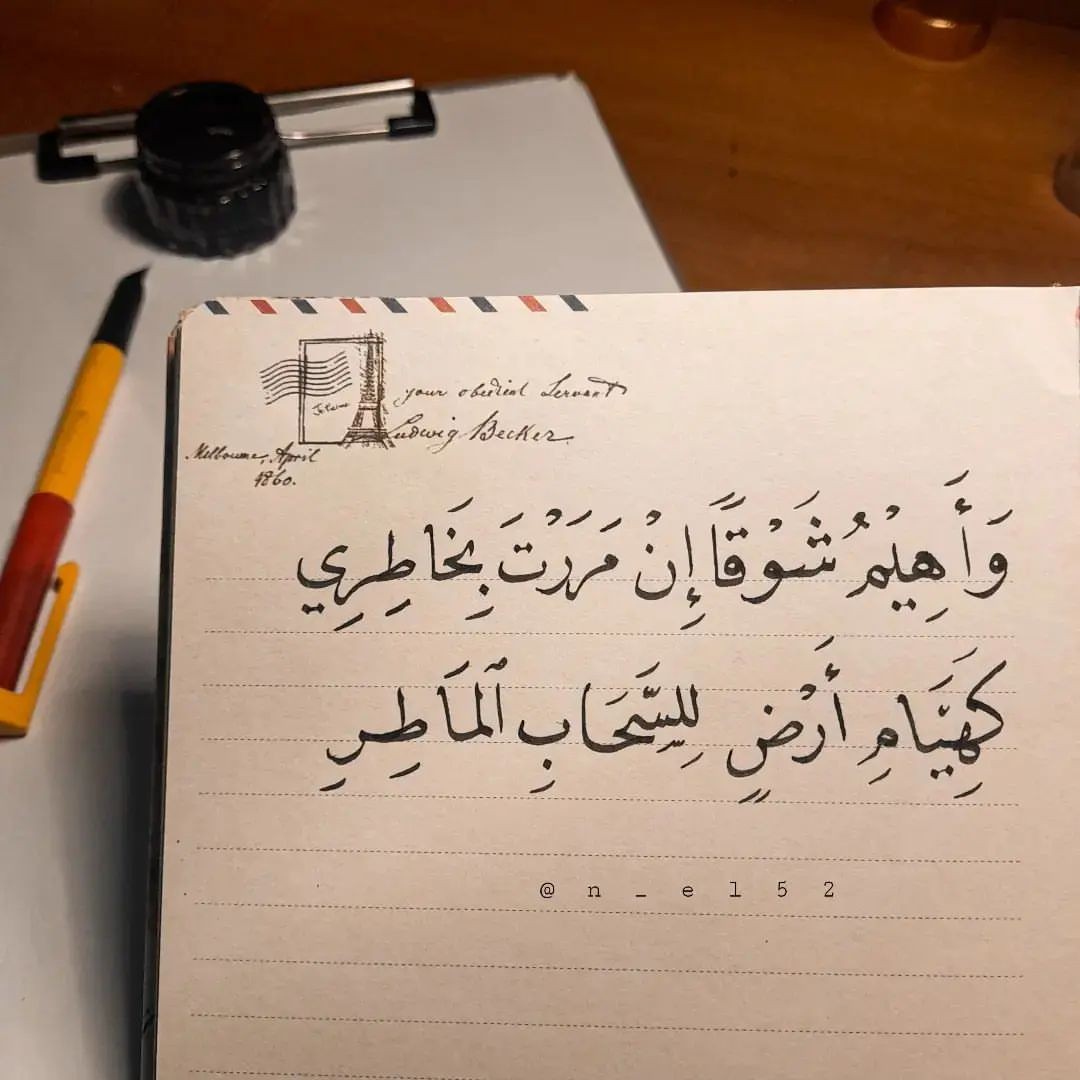 your obedient Servant
Ludwig Becker
Melbourne, April
1860.
وَأَهِيْمُ شَوْقًا إِنْ مَرَرْتَ بِخَاطِرِي
كَهِيَامِ أَرْضٍ لِلسَّحَابِ ٱلمَاطِرِ
@n_el52